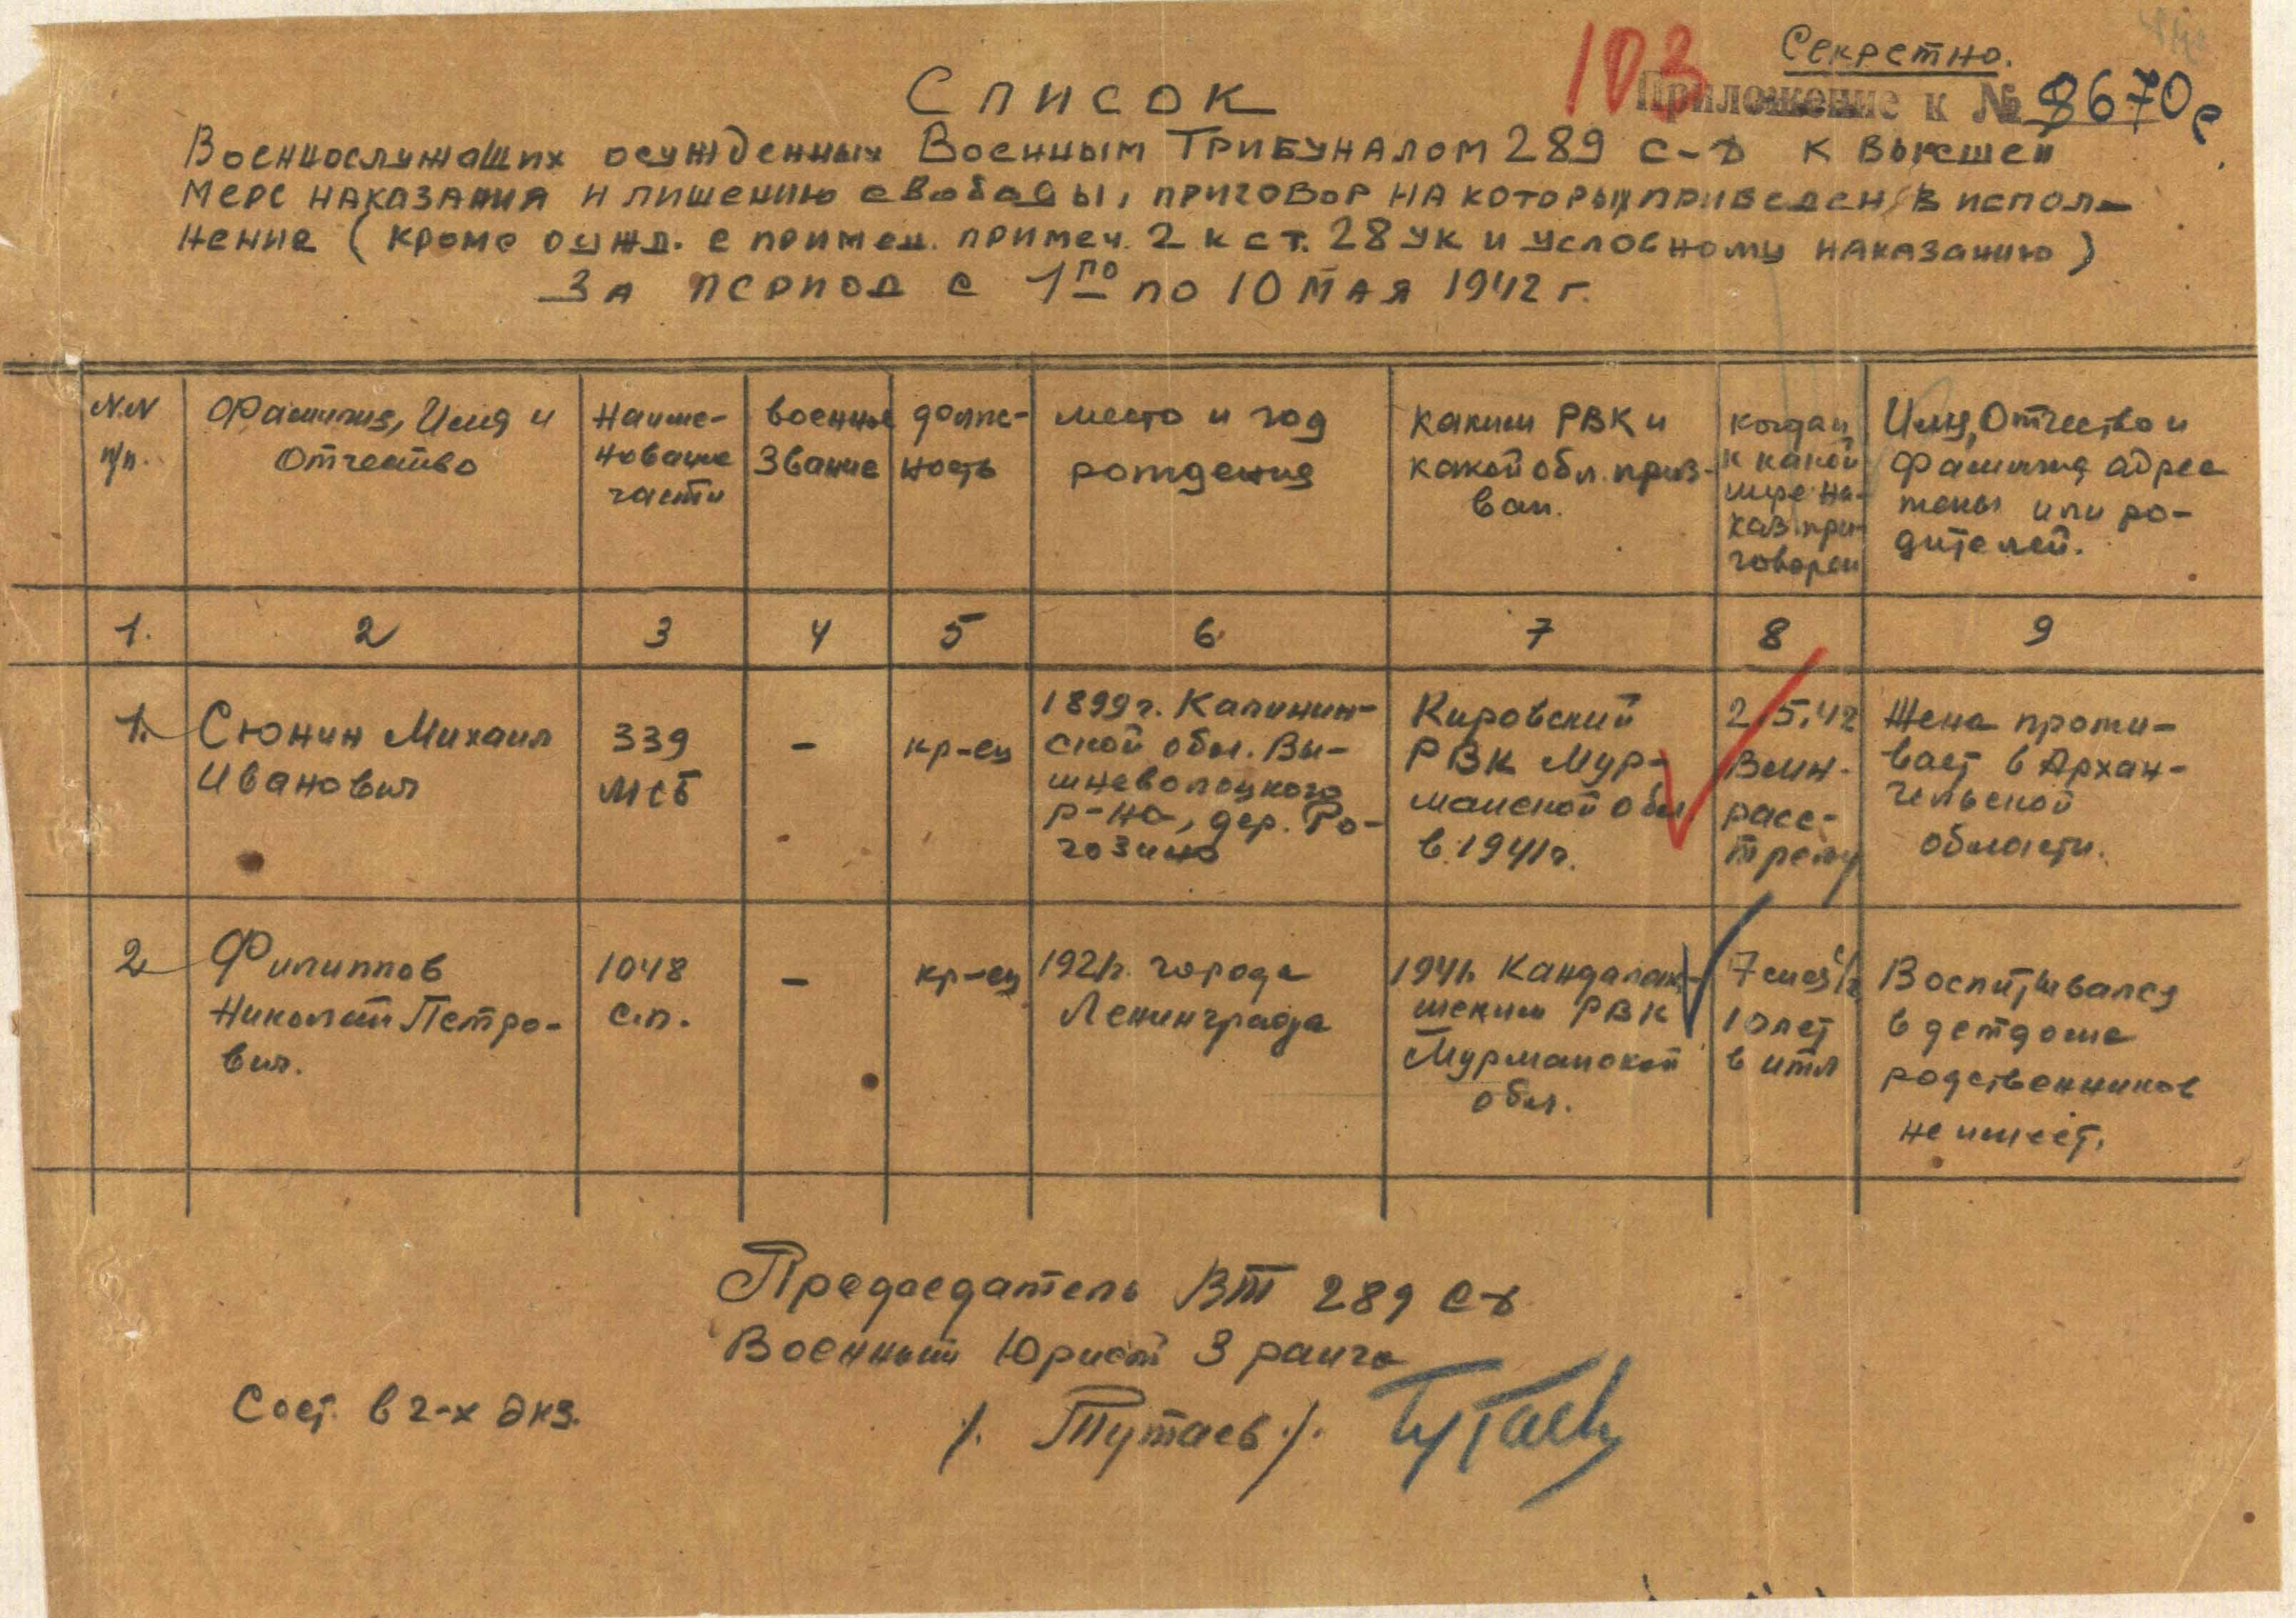 Секретно.
103
Приложение к № 8670с
Список
Военнослужащих осужденных Военным Трибуналом 289 с-д к высшей
мере наказания и лишению свободы, приговор на которых приведен в испол-
нение (кроме осужд. с примен. примеч. 2 к ст. 28 УК и условному наказанию)
За период с 1го по 10 мая 1942 г.
№№ п/п.
Фамилия, Имя и
Отчество
Наиме-
нование
части
военное
звание
долж-
ность
место и год
рождения
каким РВК и
какой обл. приз-
ван.
когда и
к какой
мере на-
каз. при-
говорен
Имя, Отчество и
фамилия, адрес
жены или ро-
дителей.
1. 2 3 4 5 6 7 8 9
1. Сюнин Михаил
Иванович
339
МСБ
-
кр-ец
1899г. Калинин-
ской обл. Вы-
шневолоцкого
р-на, дер. Ро-
гозино
Кировский
РВК Мур-
манской обл
в 1941г.
2.5.42
ВМН-
расс-
трелу
Жена прожи-
вает в Архан-
гельской
области.
2 Филиппов
Николай Петро-
вич.
1048
с.п.
-
кр-ец
1921г. города
Ленинграда
1941г. Кандалак-
шским РВК
Мурманской
обл.
10 лет
в итл
Воспитывался
в детдоме
родственников
не имеет.
Председатель ВТ 289 СД
Военный Юрист 3 ранга
/. Тутаев ./. Тутаев
Сост. в 2-х экз.